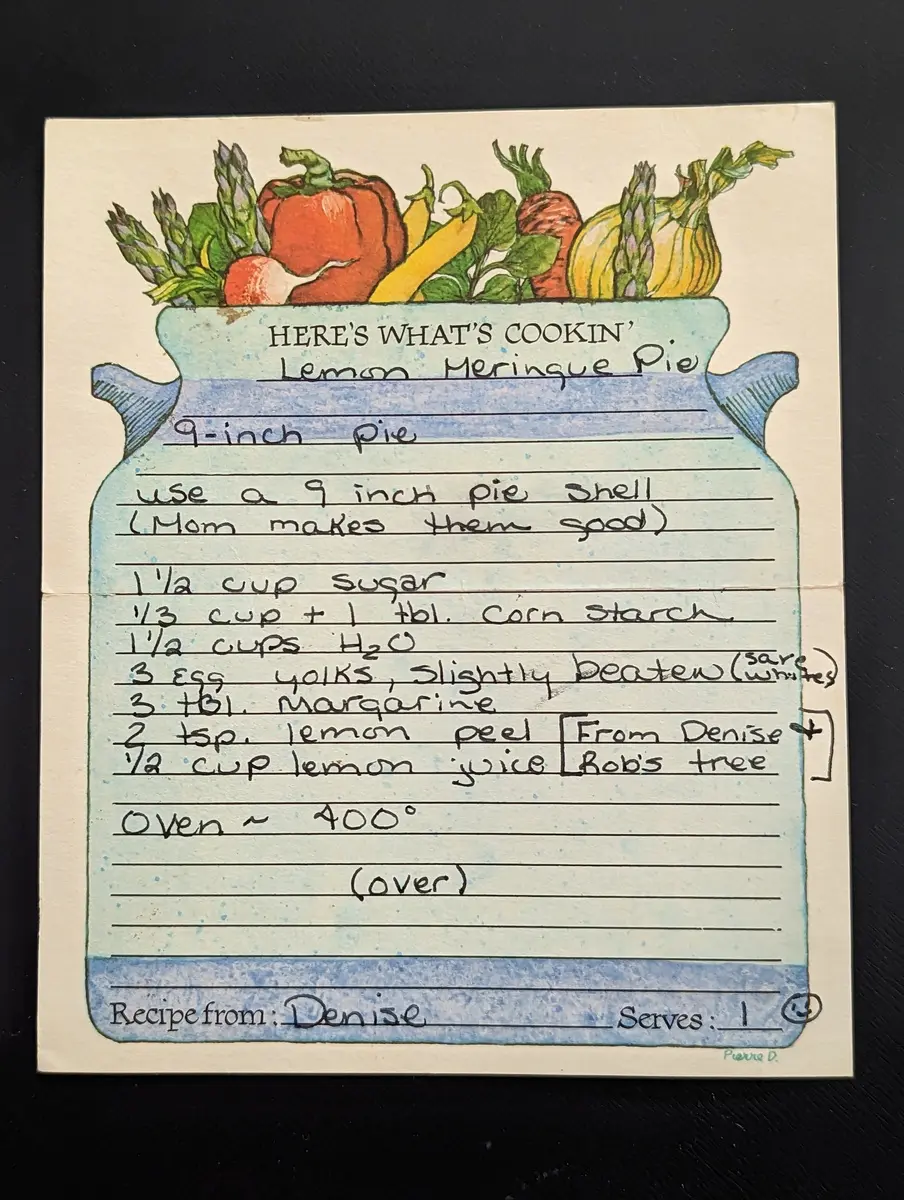 HERE'S WHAT'S COOKIN'
Lemon Meringue Pie
9-inch pie
use a 9 inch pie shell
(Mom makes them good)
1 1/2 cup sugar
1/3 cup + 1 tbl. Corn Starch
1 1/2 cups H₂O
3 Egg yolks, slightly beaten (save whites)
3 tBl. Margarine
2 tsp. lemon peel [From Denise +
1/2 cup lemon juice [Rob's tree]
Oven ~ 400°
(over)
Recipe from: Denise Serves: 1 ☺
Pierre D.